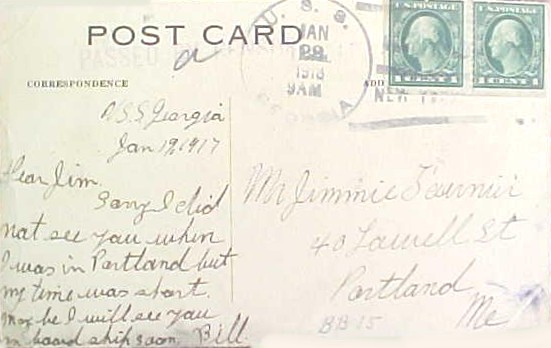 POST CARD
PASSED
CORRESPONDENCE
ADD
U. S. S.
JAN
1918
9AM
GEORGIA
NEW
U.S. POSTAGE
1 CENT 1
U.S. POSTAGE
1 CENT 1
U.S.S Georgia
Jan 19, 1917
Dear Jim,
Sorry I did
not see you when
I was in Portland but
my time was short.
may be I will see you
on board ship soon. Bill.
Mr Jimmie
40 Lowell St
Portland
Me
BB 15